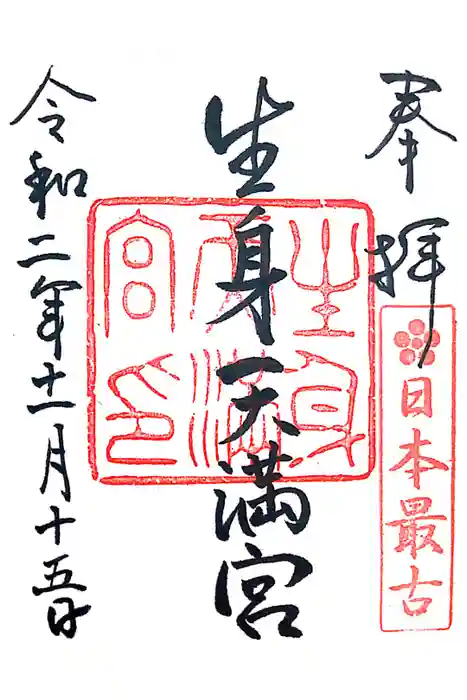 奉拝
日本最古
生身天満宮
生身天満宮印
令和二年十一月十五日